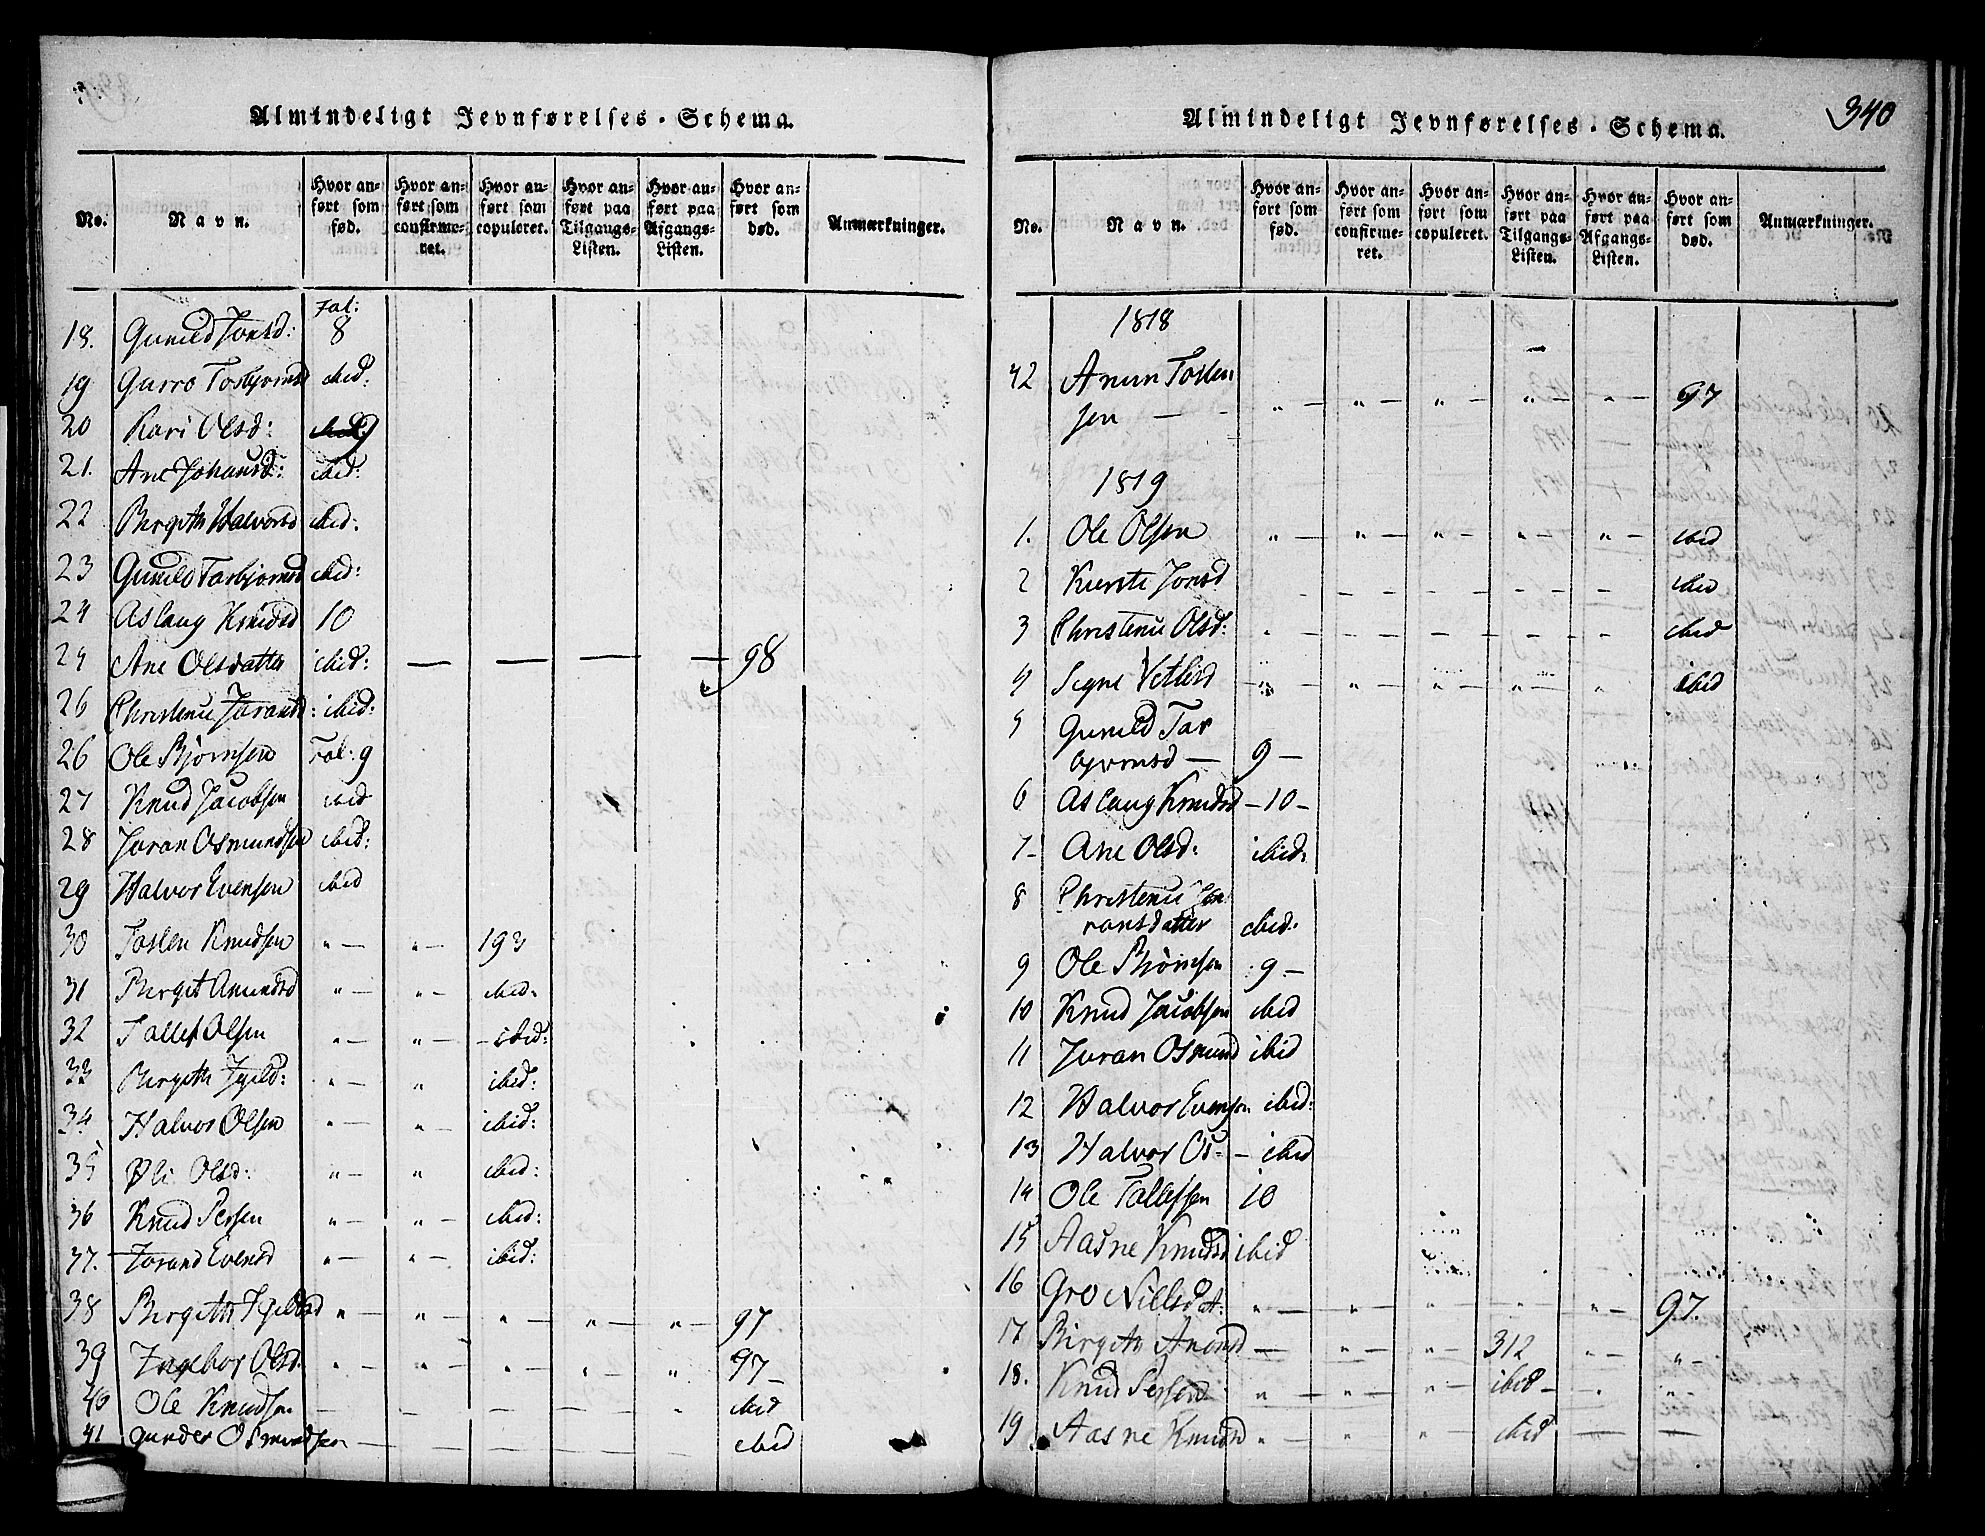 Almindeligt Jevnførelses-Schema.
No. Navn. Hvor anført som fød. Hvor anført som confirmeret. Hvor anført som copuleret. Hvor anført paa Tilgangs-Listen. Hvor anført paa Afgangs-Listen. Hvor anført som død. Anmærkninger.
Fol:
18. Guneld Jonsd: 8
19 Gurro Torbjornsd ibid:
20 Kari Olsd: 9
21. Ane Johansd: ibid:
22 Bergith Halvorsd ibid:
23 Guneld Tarbjornsd ibid:
24 Aslaug Knudsd 10
25 Ane Olsdatter ibid: — — — — 98
26 Christenie Joransd: ibid:
26 Ole Bjørnsen Fol: 9
27 Knud Jacobsen ibid
28 Joran Osmundsen ibid:
29 Halvor Evensen ibid
30 Tosten Knudsen " — " — 193
31 Bergit Amundsd " — " — ibid:
32 Tallef Olsen " — " — ibid:
33 Bergith Jyeld: " — " ibid:
34 Halvor Olsen " — " — ibid:
35 Olsd: " — " ibid:
36 Knud Persen " — " — ibid:
37. Jorand Evensd " — " — ibid:
38 Bergith " — " — " — " — " — 97
39 Ingebor Olsd. " — " — " — " — " 97 —
40 Ole Knudsen — — — — " ibid
41 Gunder Osmundsen — — — — — ibid
Almindeligt Jevnførelses-Schema.
340
No. Navn. Hvor anført som fød. Hvor anført som confirmeret. Hvor anført som copuleret. Hvor anført paa Tilgangs-Listen. Hvor anført paa Afgangs-Listen. Hvor anført som død. Anmærkninger.
1818
42 Anun Tosten
sen — " — " — " — " — " — 97
1819
1. Ole Olsen " — " — " — " — " — ibid
2 Kirsti Jonsd — — — — — ibid
3 Christenie Olsd: " — — — — " — ibid
4 Segne Vetlesd " — " — " — " — " ibid
5 Guneld Tar
bjornsd — 9 —
6 Aslaug Knudsd — 10 —
7 — Ane Olsd: ibid:
8 Christenie Jo
ransdatter ibid:
9 Ole Bjørnsen 9 —
10 Knud Jacobsen ibid
11 Joran Osmund ibid
12 Halvor Evensen ibid:
13 Halvor Os — ibid
14 Ole Tallefsen 10
15 Aasne Knudsd ibid
16 Gro Nielsdat: " — " — " — " — " — 97.
17 Birgith — " — " — 312 " — " —
18. Knud Persen " — " — " — ibid — " "
19 Aasne Knudsd " — " — " ibid — —